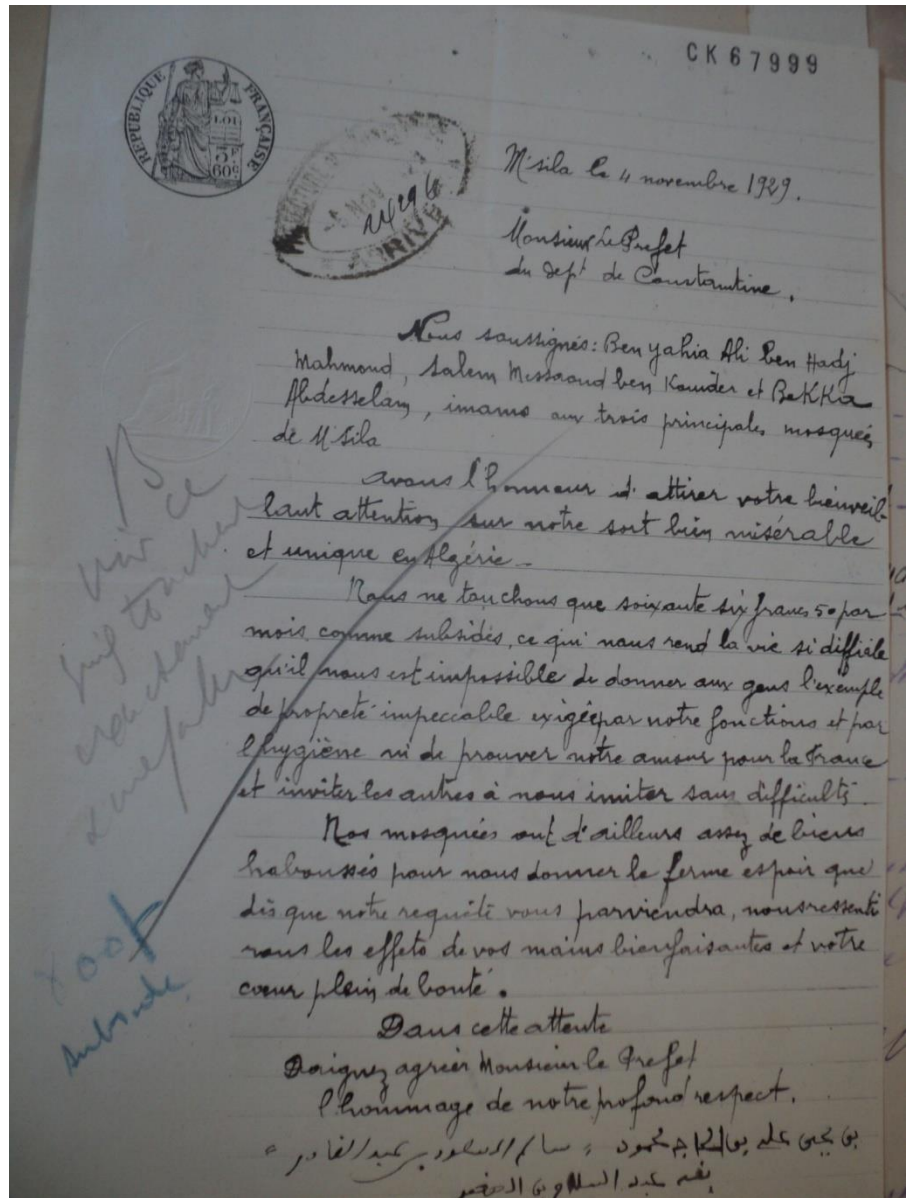 CK67999
RÉPUBLIQUE FRANÇAISE
LOI
3F
60c
ARRIVÉE
M'sila le 4 novembre 1929.
Monsieur Le Prefet
du dept de Constantine.
Nous soussignés: Ben yahia Ali ben Hadj
Mahmoud, Salem Messaoud ben Kouider et Bekkia
Abdesselam, imams aux trois principales mosquées
de M'sila
avons l'honneur d'attirer votre bienveil-
lant attention sur notre sort bien misérable
et unique en Algérie -
Nous ne touchons que soixante six francs 50 par
mois comme subsides, ce qui nous rend la vie si difficile
qu'il nous est impossible de donner aux gens l'exemple
de propreté impeccable exigée par notre fonctions et par
l'hygiène ni de prouver notre amour pour la France
et inviter les autres à nous imiter sans difficulté.
Nos mosquées ont d'ailleurs assez de biens
haboussés pour nous donner le ferme espoir que
dès que notre requête vous parviendra, nous ressenti
rons les effets de vos mains bienfaisantes et votre
cœur plein de bonté.
Dans cette attente
Daignez agréer Monsieur le Prefet
l'hommage de notre profond respect.
بن يحيى علي بن الحاج محمود
عبد القادر
عبد السلام بن
voir ce
subside